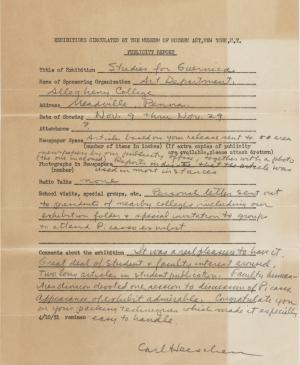 EXHIBITIONS CIRCULATED BY THE MUSEUM OF MODERN ART, NEW YORK, N.Y.
PUBLICITY REPORT
Title of Exhibition Studies for Guernica
Name of Sponsoring Organization Art Department,
Allegheny College
Address Meadville, Penna.
Date of Showing Nov. 9 thru Nov. 29
Attendance ?
Newspaper Space Article based on your release sent to 50 area
(number of items in inches) (If extra copies of publicity
newspapers by our publicity office, together with a photo
are available, please attach system)
(the one inclosed) Reports that the article was
Photographs in Newspapers used in most instances
(number)
Radio Talks none
School visits, special groups, etc. Personal letter sent out
to presidents of nearby colleges including our
exhibition folder & special invitation to groups
to attend Picasso exhibit
Comments about the exhibition It was a real pleasure to have it.
Great deal of student & faculty interest around.
Two long articles in student publication. Faculty human-
devoted one session to discussion of Picasso
Appearance of exhibit admirable. Congratulate you
on your packing techniques which made it especially
4/10/51 easy to handle
Carl Heeschen